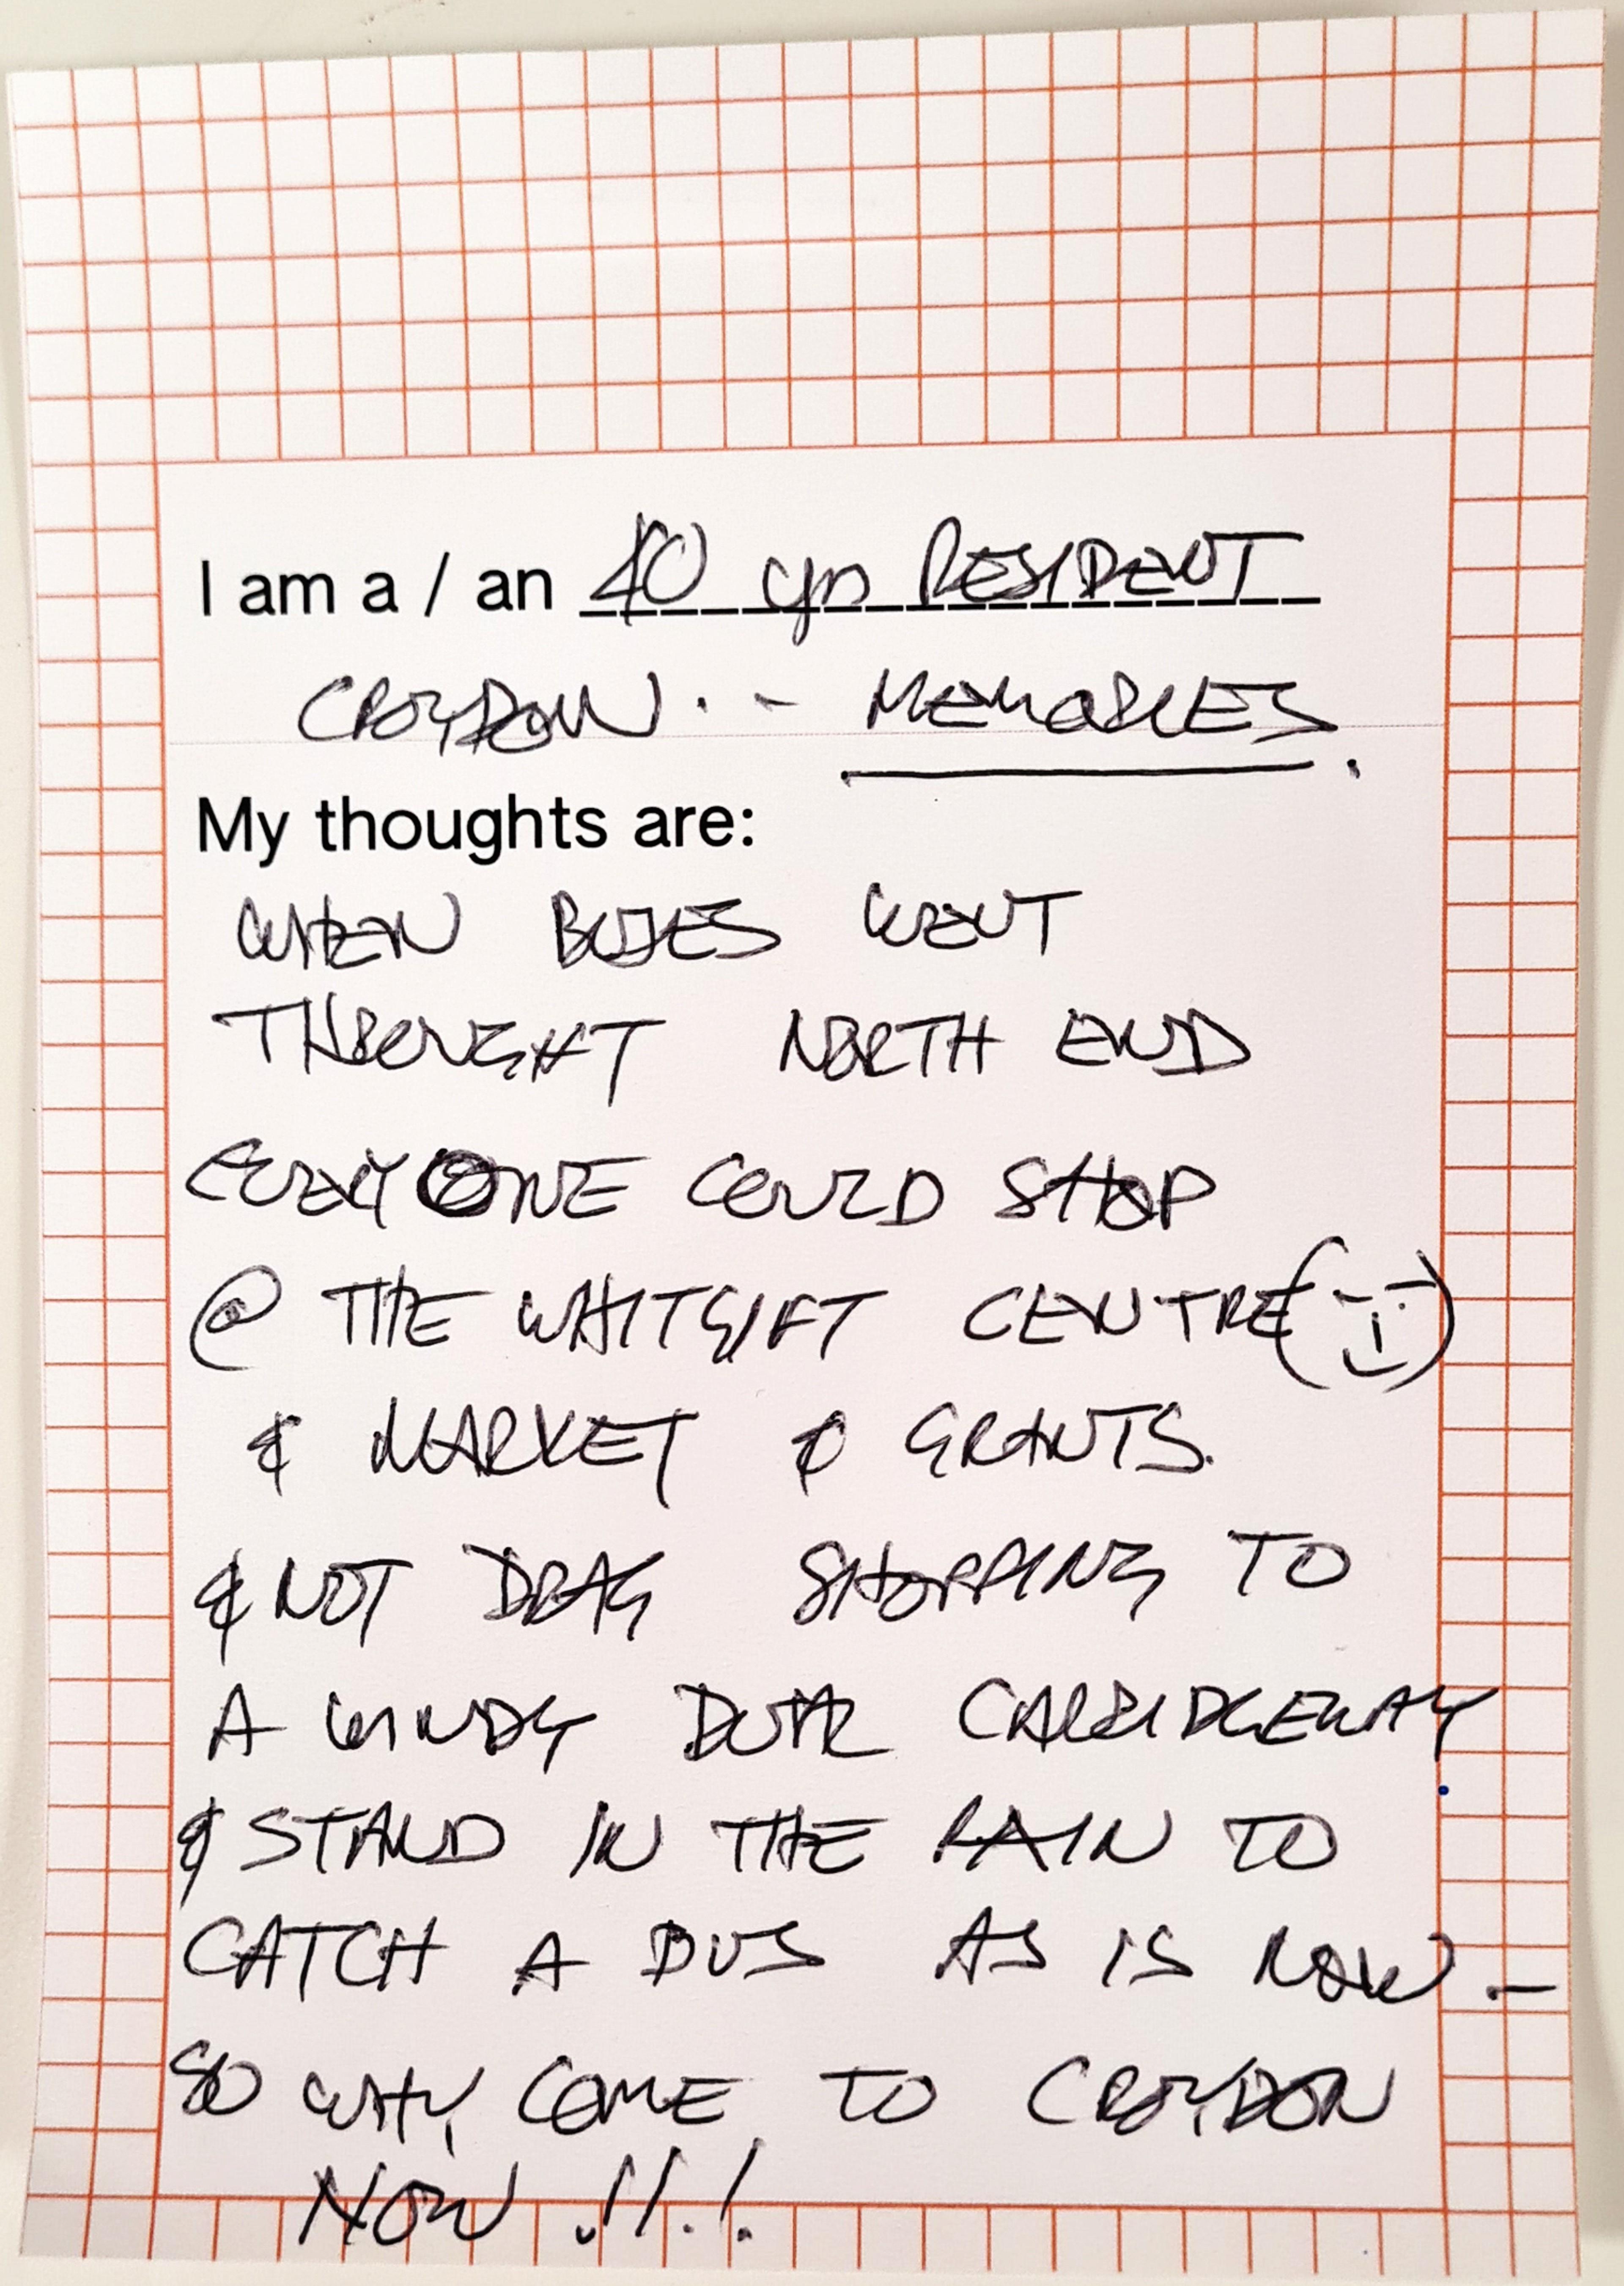 I am a / an 40 yrs RESIDENT
CROYDON. - MEMORIES.
My thoughts are:
WHEN BUSES WENT
THROUGHT NORTH END
EVERYONE COULD SHOP
@ THE WHITGIFT CENTRE
& MARKET & GRANTS.
& NOT DRAG SHOPPING TO
A WINDY DUAL CARRIDGEWAY
& STAND IN THE RAIN TO
CATCH A BUS AS IS NOW -
SO WHY COME TO CROYDON
NOW !!!